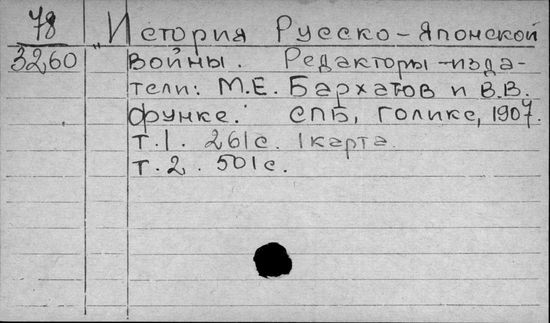 78
3260
„История Русско-Японской
войны. Редакторы-изда-
тели: М.Е. Бархатов и В.В.
Функе." СПБ, Голике, 1907.
т.1. 261с. 1 карта.
т.2. 501с.